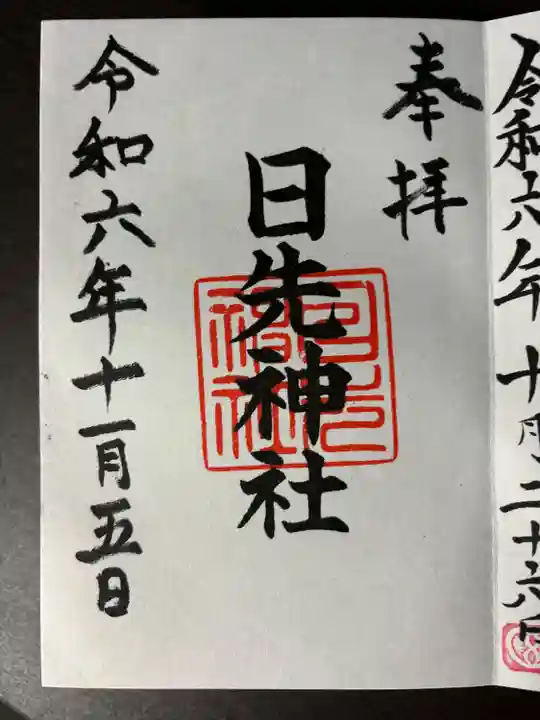 令和六年十月二十六日
奉拝
日先神社
令和六年十一月五日